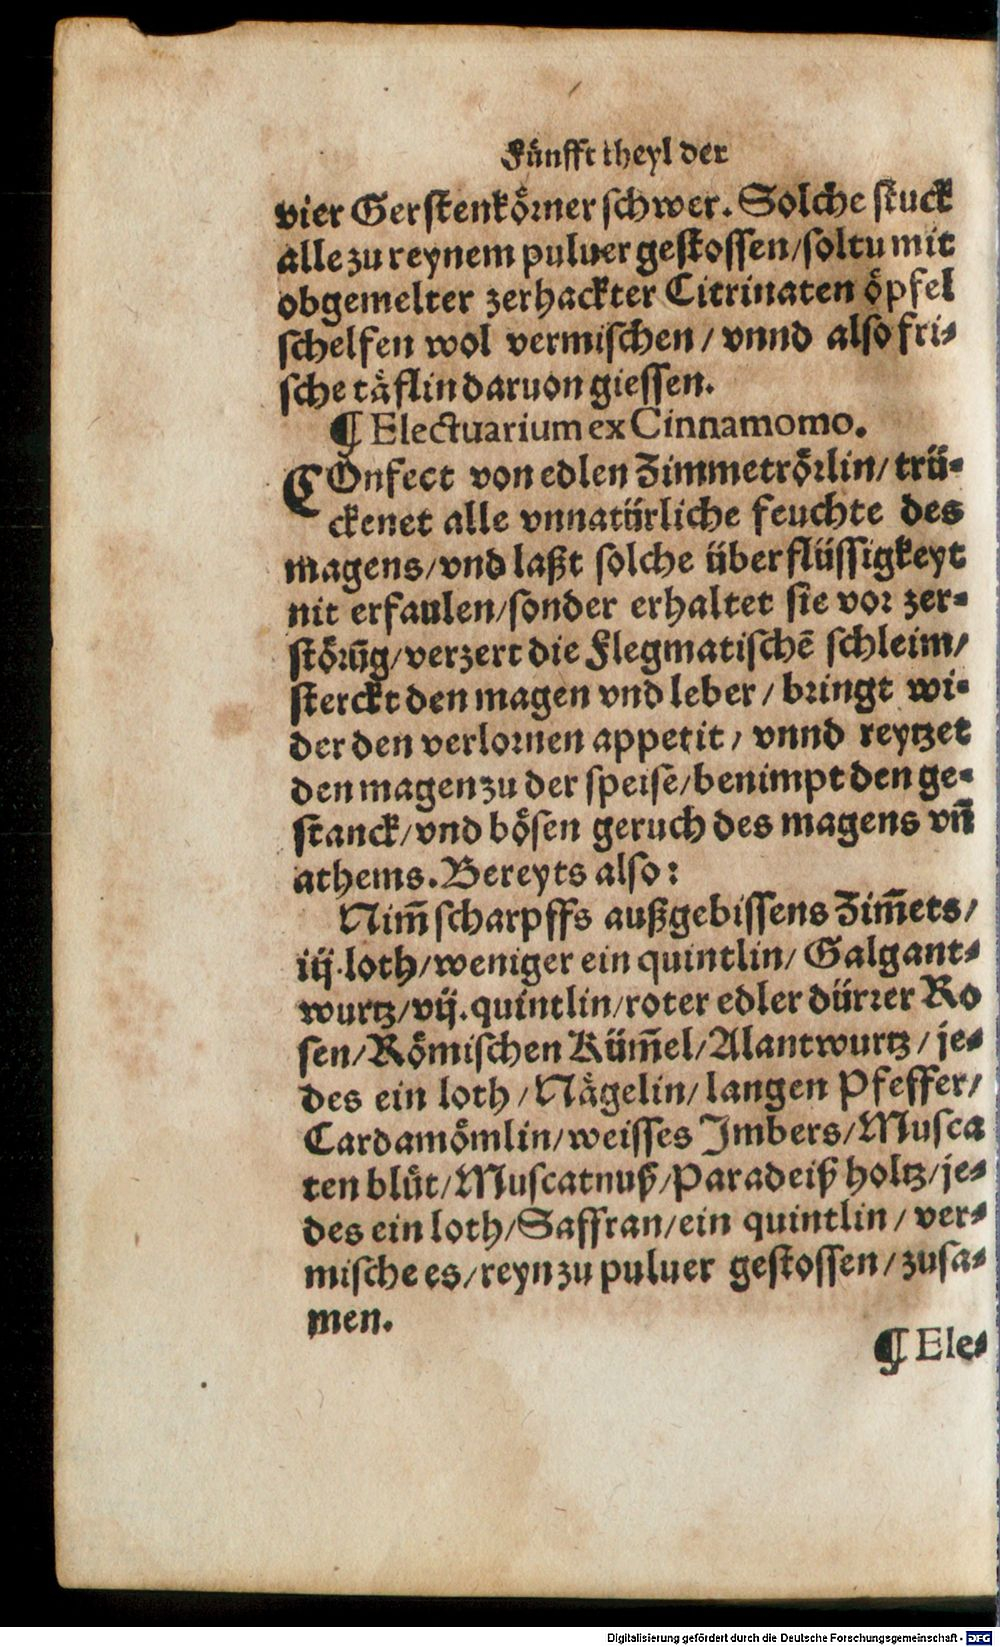 Fünfft theyl der
vier Gerstenkörner schwer. Solche stuck
alle zu reynem puluer gestossen/soltu mit
obgemelter zerhackter Citrinaten öpfel
schelfen wol vermischen/ vnnd also fri⸗
sche täflin daruon giessen.
¶ Electuarium ex Cinnamomo.
COnfect von edlen Zimmetrörlin/ trü⸗
ckenet alle vnnatürliche feuchte des
magens/vnd laßt solche überflüssigkeyt
nit erfaulen/sonder erhaltet sie vor zer⸗
störũg/verzert die Flegmatischẽ schleim/
sterckt den magen vnd leber/ bringt wi⸗
der den verlornen appetit/ vnnd reytzet
den magen zu der speise/benimpt den ge⸗
stanck/vnd bösen geruch des magens vñ
athems. Bereyts also:
Nim̃ scharpffs außgebissens Zim̃ets/
iij.loth/weniger ein quintlin/ Galgant⸗
wurtz/vij.quintlin/roter edler dürrer Ro
sen/Römischen Küm̃el/Alantwurtz/ je⸗
des ein loth/Nägelin/langen Pfeffer/
Cardamömlin/weisses Jmbers/Musca
ten blüt/Muscatnuß/Paradeiß holtz/je⸗
des ein loth/Saffran/ein quintlin/ ver⸗
mische es/reyn zu puluer gestossen/zusa⸗
men.
¶ Ele⸗
Digitalisierung gefördert durch die Deutsche Forschungsgemeinschaft - DFG